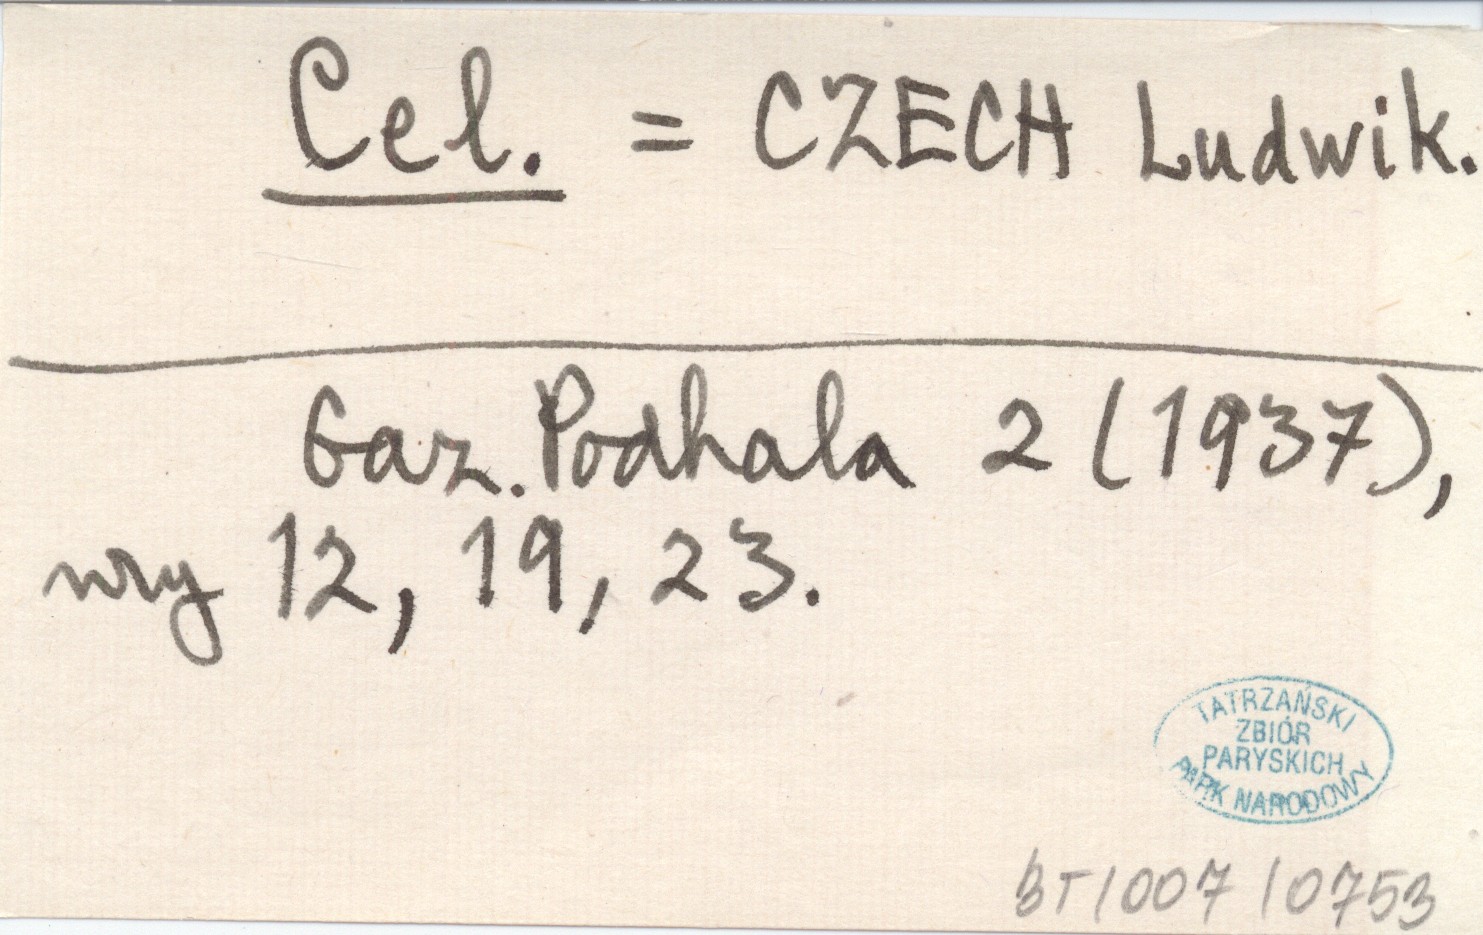 Cel. = CZECH Ludwik.
Gaz. Podhala 2 (1937),
nry 12, 19, 23.
TATRZAŃSKI
ZBIÓR
PARYSKICH
PARK NARODOWY
BT/007/0753